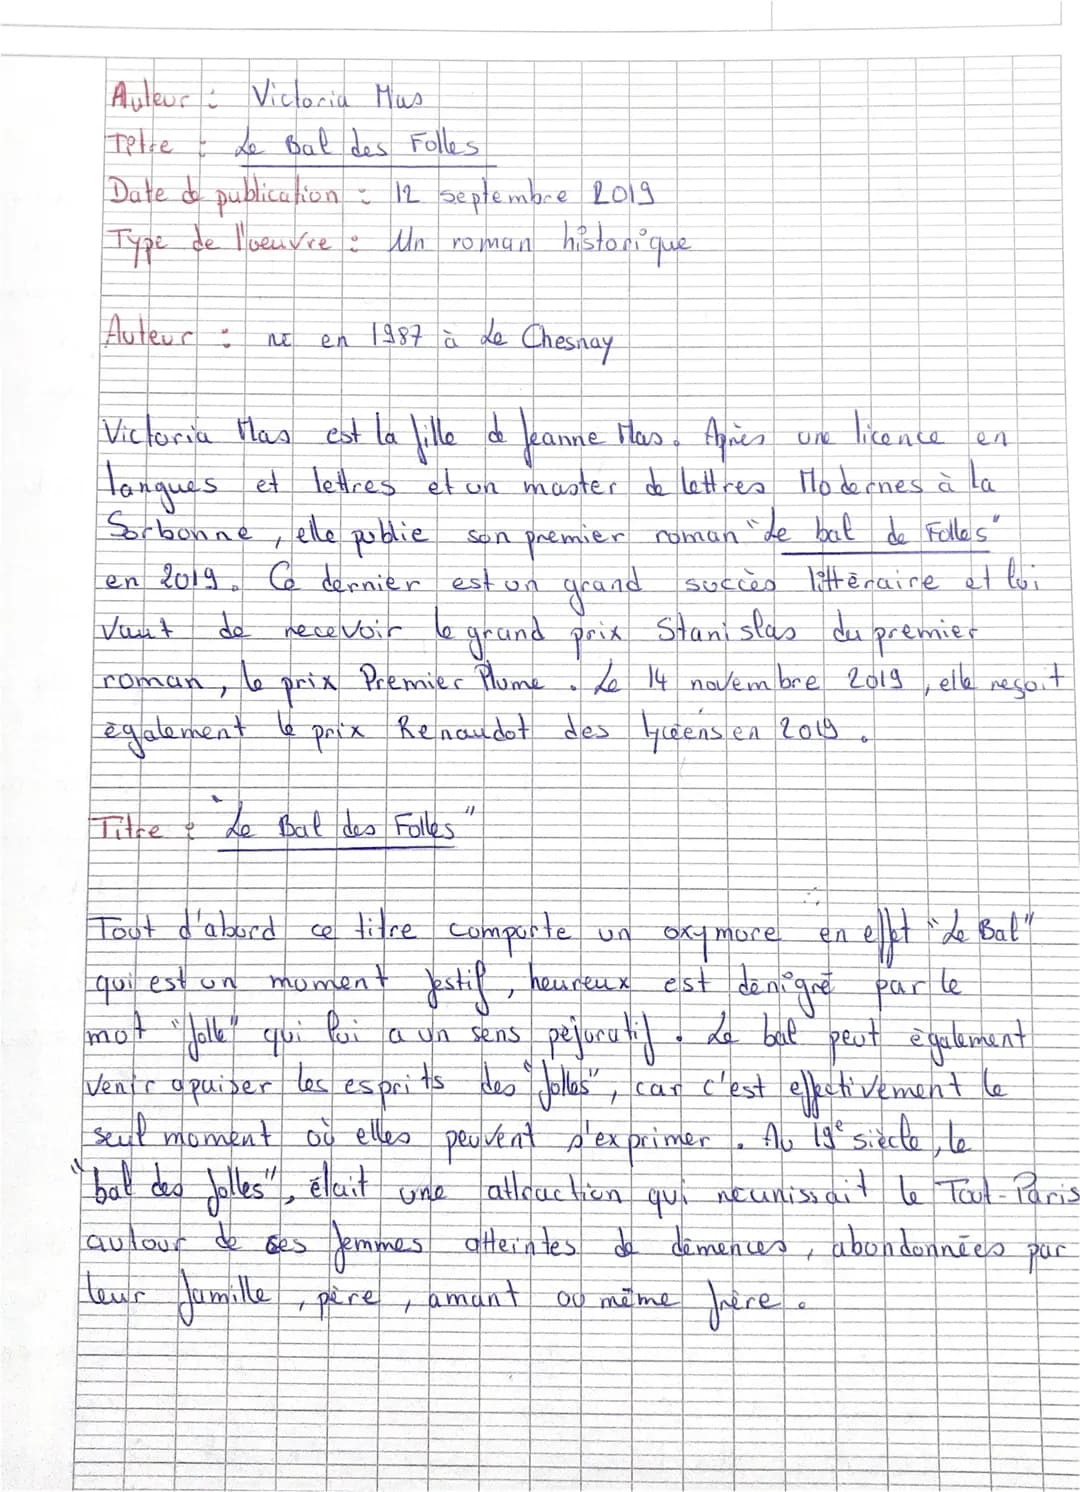 Auteur : Victoria Mas
Titre : Le Bal des Folles
Date de publication : 12 septembre 2019
Type de l'oeuvre : Un roman historique
Auteur : né en 1987 à Le Chesnay
Victoria Mas est la fille de Jeanne Mas. Après une licence en
langues et lettres et un master de lettres Modernes à la
Sorbonne, elle publie son premier roman "Le bal de Folles"
en 2019. Ce dernier est un grand succès littéraire et lui
vaut de recevoir le grand prix Stanislas du premier
roman, le prix Premier Plume. Le 14 novembre 2019, elle reçoit
également le prix Renaudot des lycéens en 2019.
Titre : "Le Bal des Folles"
Tout d'abord ce titre comporte un oxymore en effet "Le Bal"
qui est un moment festif, heureux est dénigré par le
mot "folle" qui lui a un sens péjoratif. Le bal peut également
venir apaiser les esprits des "folles", car c'est effectivement le
seul moment où elles peuvent s'exprimer. Au 19e siècle, le
"bal des folles", était une attraction qui réunissait le Tout-Paris
autour de ses femmes atteintes de démences, abondonnées par
leur famille, père, amant ou même frère.